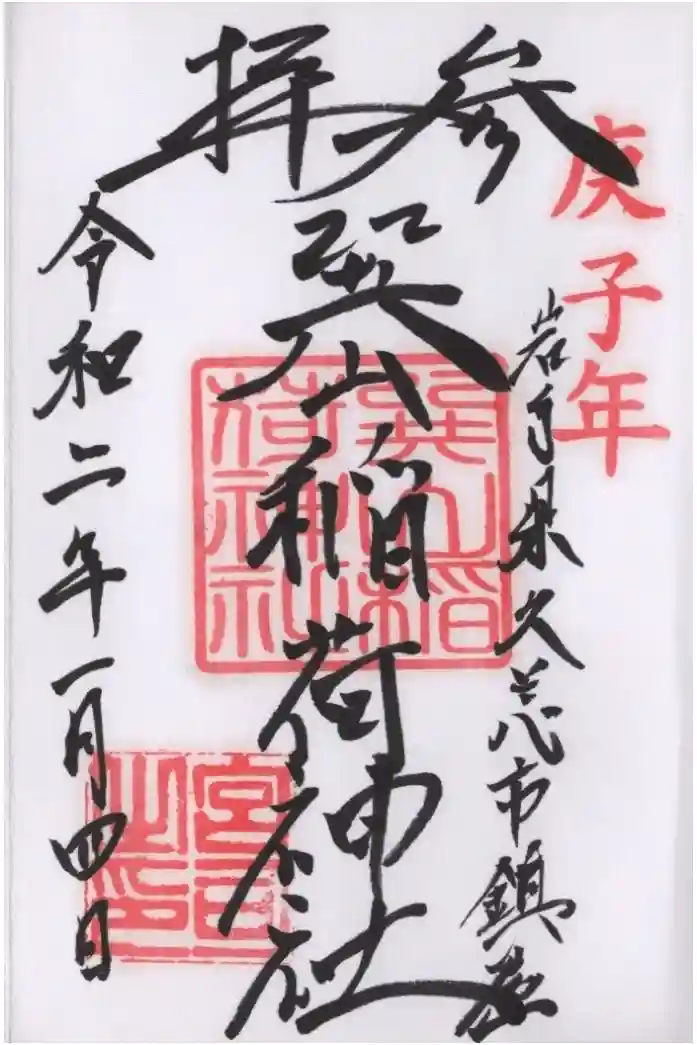 庚子年
岩手県久慈市鎮座
参拝
巽山稲荷神社
巽山稲荷神社
令和二年一月四日
宮司之印